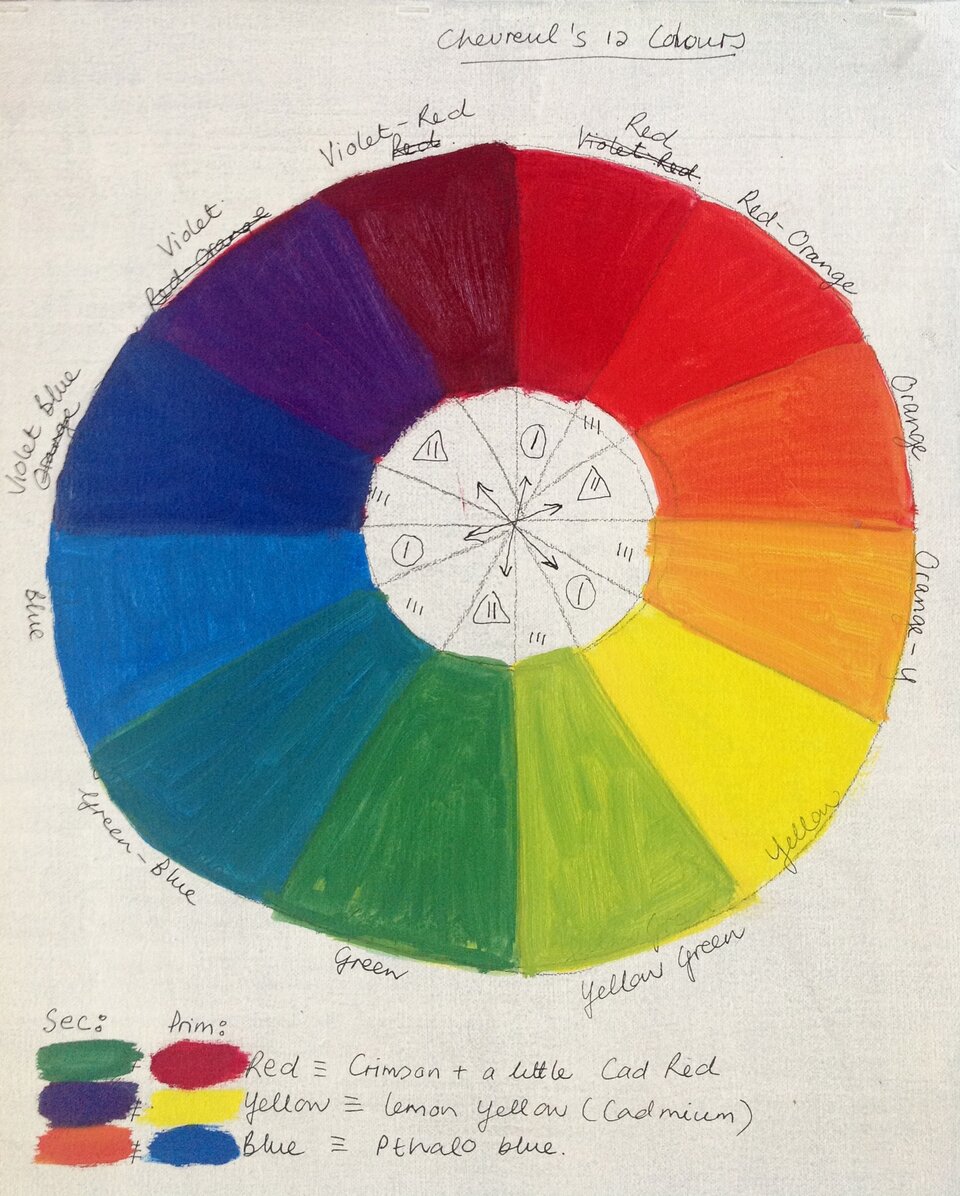 Chevreul's 12 Colours
Violet-Red
Red
Red
Violet-Red.
Red-Orange
Orange
Orange-Y
Yellow
Yellow Green
Green
Green-Blue
Blue
Violet Blue
Orange
Violet
Red-Orange
I
III
II
III
I
III
II
III
I
III
II
Sec:
Prim:
≠ Red ≡ Crimson + a little Cad Red
≠ Yellow ≡ lemon Yellow (Cadmium)
≠ Blue ≡ Pthalo blue.